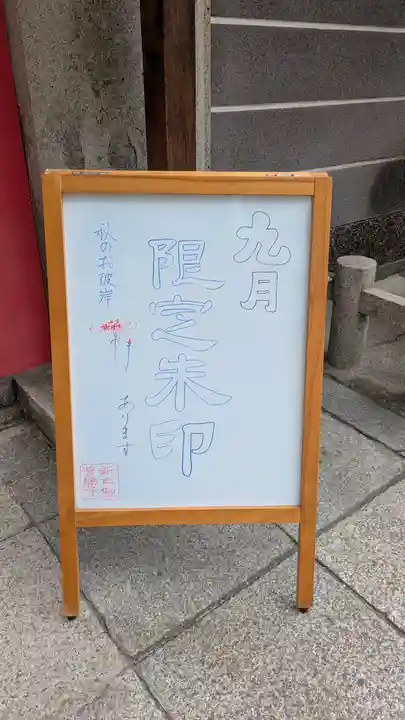 九月
限定朱印
秋のお彼岸
あります